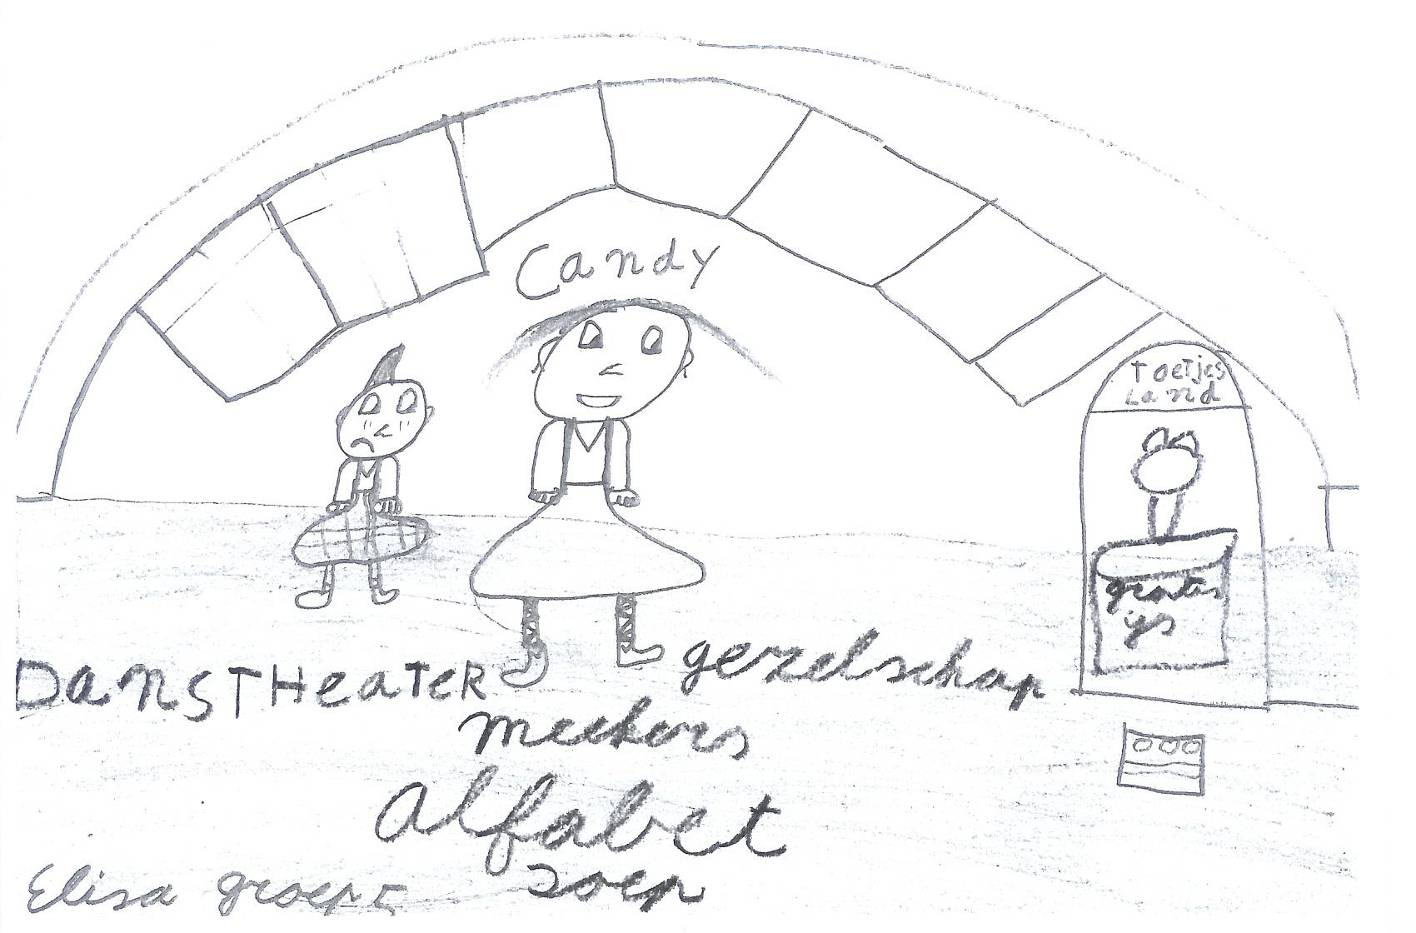 Candy
Toetjes
Land
gratis
ijs
DansTHeaTer gezelschap
meekers
alfabet
soep
Elisa groep 5